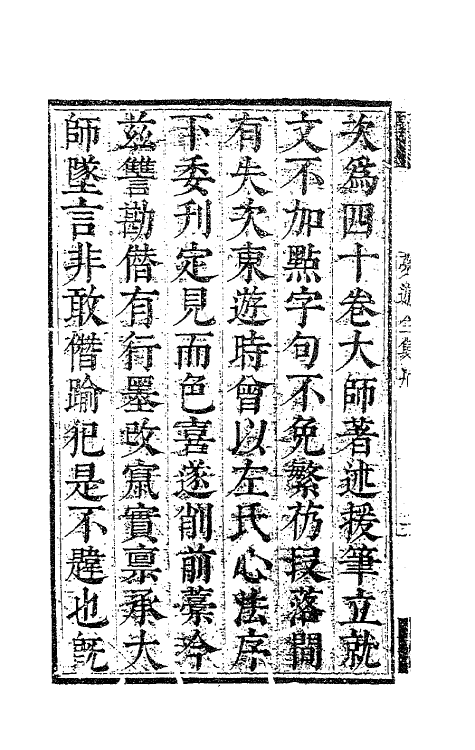 次爲四十卷大師著述援筆立就
文不加點字句不免繁仍段落間
有失次東遊時曾以左氏心法序
下委刊定見而色喜遂削前藁今
茲讐勘僭有行墨改竄實禀承大
師墜言非敢僭踰犯是不韙也旣
夢遊全集序